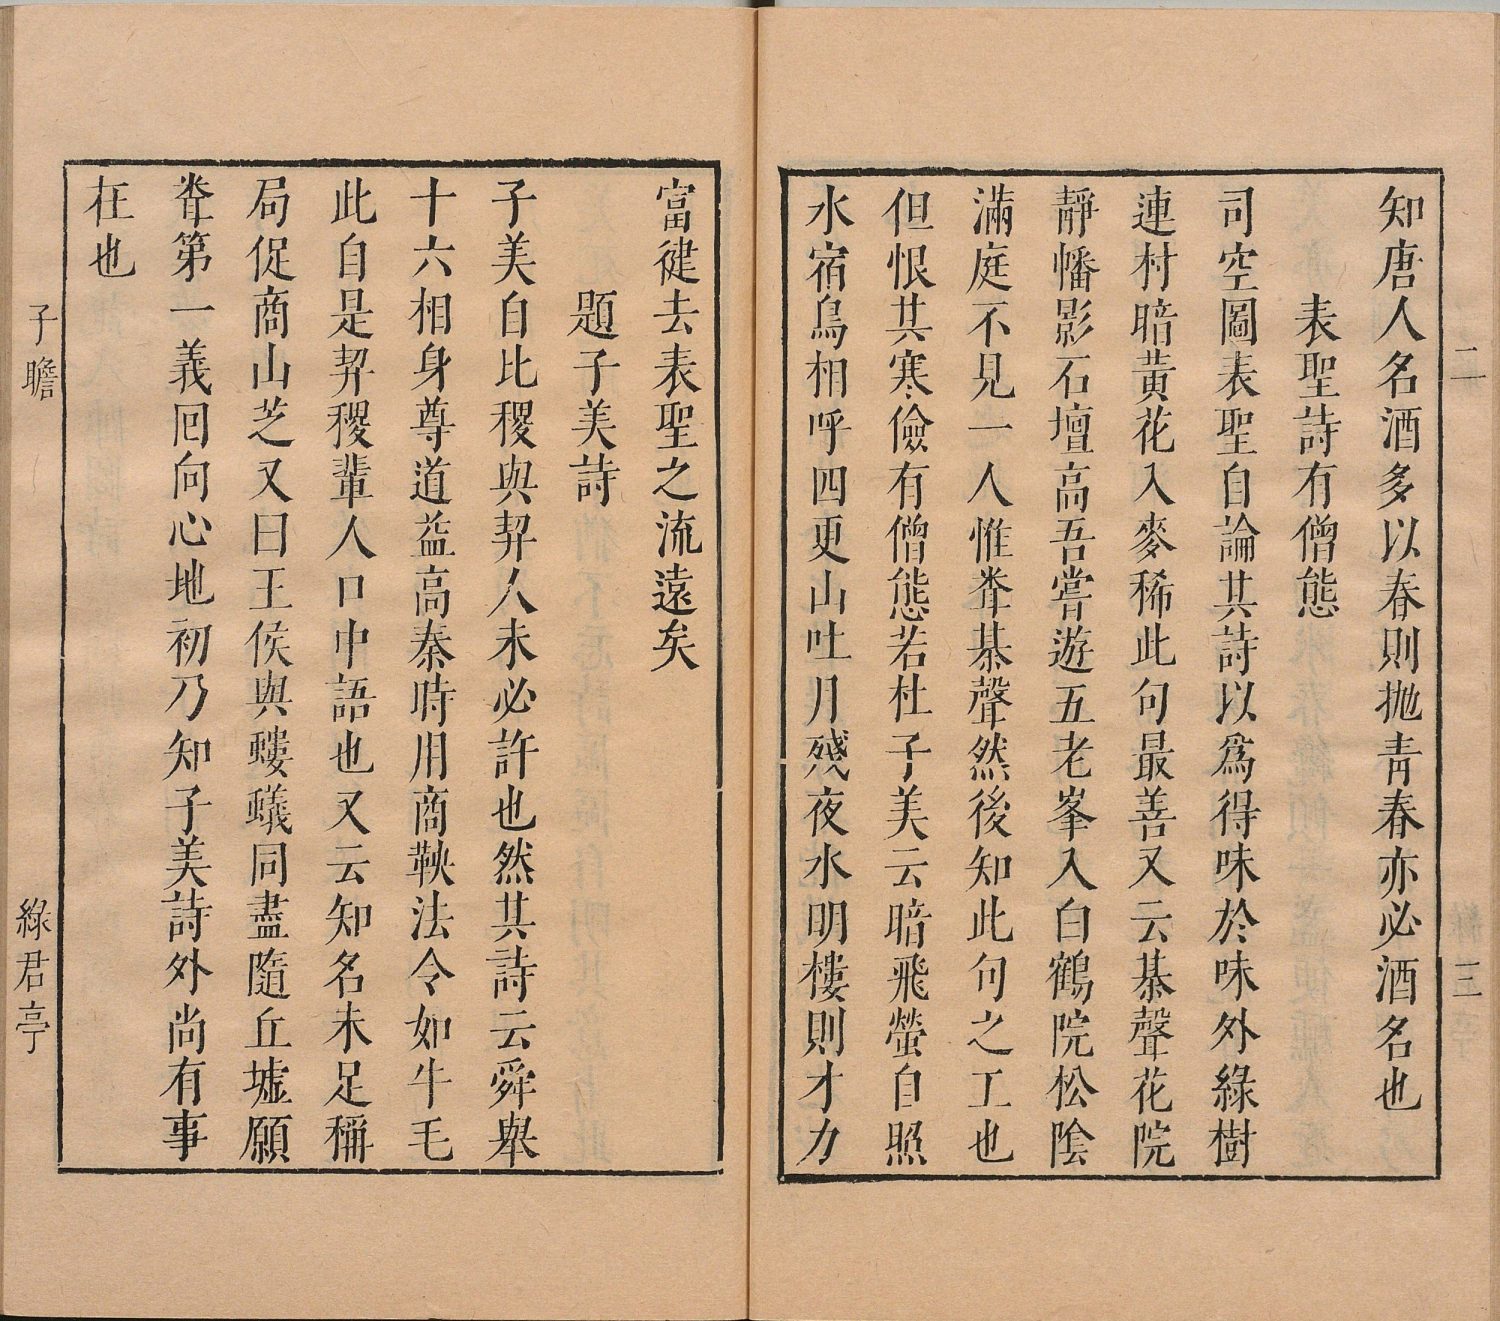 知唐人名酒多以春則拋青春亦必酒名也
表聖詩有僧態
司空圖表聖自論其詩以爲得味於味外綠樹
連村暗黃花入麥稀此句最善又云棊聲花院
靜幡影石壇高吾嘗遊五老峯入白鶴院松陰
滿庭不見一人惟聞棊聲然後知此句之工也
但恨其寒儉有僧態若杜子美云暗飛螢自照
水宿鳥相呼四更山吐月殘夜水明樓則才力
富健去表聖之流遠矣
題子美詩
子美自比稷與契人未必許也然其詩云舜舉
十六相身尊道益高秦時用商鞅法令如牛毛
此自是契稷輩人口中語也又云知名未足稱
局促商山芝又曰王侯與螻蟻同盡隨丘墟願
聞第一義回向心地初乃知子美詩外尚有事
在也
子瞻
綠君亭